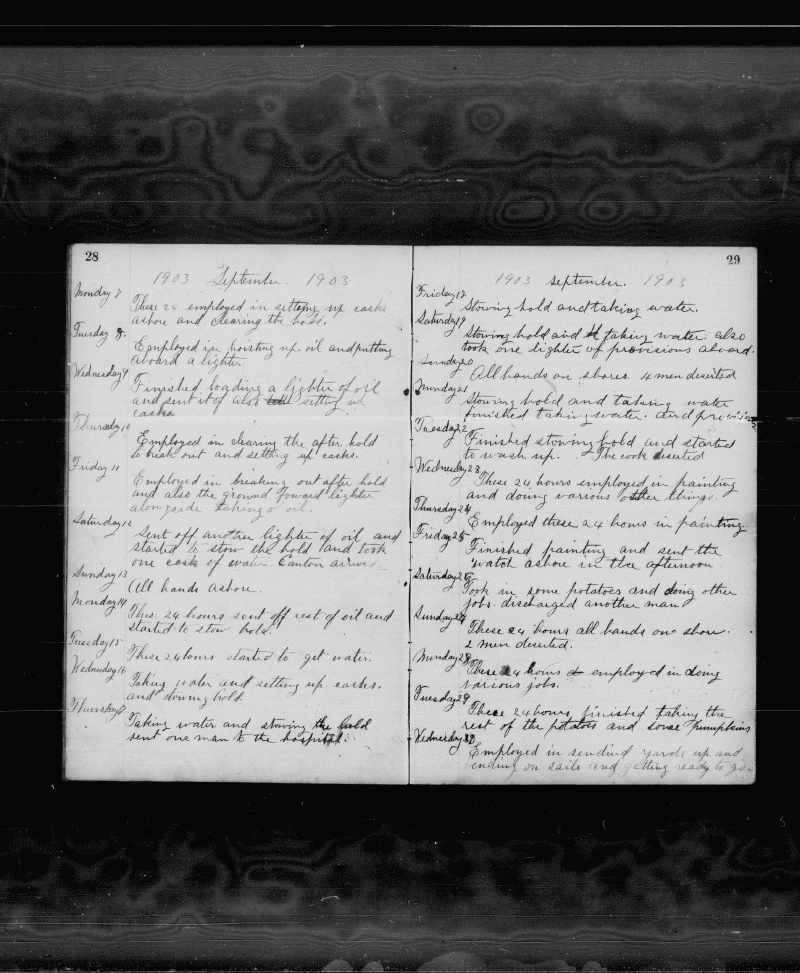 28
1903 September. 1903
Monday 7
These 24 employed in setting up casks
ashore and clearing the hold.
Tuesday 8.
Employed in hoisting up oil and putting
aboard a lighter.
Wednesday 9
Finished loading a lighter of oil
and sent it of also setting up
casks.
Thursday 10
Employed in clearing the after hold
to break out and setting up casks.
Friday 11
Employed in breaking out after hold
and also the ground foward lighter
alongside taking oil.
Saturday 12
Sent off another lighter of oil and
started to stow the hold and took
one cask of water. Canton arrived
Sunday 13
All hands ashore.
Monday 14
These 24 hours sent off rest of oil and
started to stow hold.
Tuesday 15
These 24 hours started to get water.
Wednesday 16
Taking water and setting up casks.
and stowing hold.
Thursday 17
Taking water and stowing the hold
sent one man to the hospital.
29
1903 September. 1903
Friday 18
Stowing hold and taking water.
Saturday 19
Stowing hold and taking water. also
took one lighter of provisions aboard.
Sunday 20
All hands on shore. 4 men deserted
Monday 21
Stowing hold and taking water
finished taking water. and provisions
Tuesday 22
Finished stowing hold and started
to wash up. The cook deserted
Wednesday 23
These 24 hours employed in painting
and doing various other things.
Thursday 24
Employed these 24 hours in painting.
Friday 25
Finished painting and sent the
watch ashore in the afternoon.
Saturday 26
Took in some potatoes and doing other
jobs. discharged another man
Sunday 27
These 24 hours all hands on shore.
2 men deserted.
Monday 28
These 24 hours employed in doing
various jobs.
Tuesday 29
These 24 hours finished taking the
rest of the potatos and some pumpkins
Wednesday 30
Employed in sending yards up and
bending on sails and getting ready to go